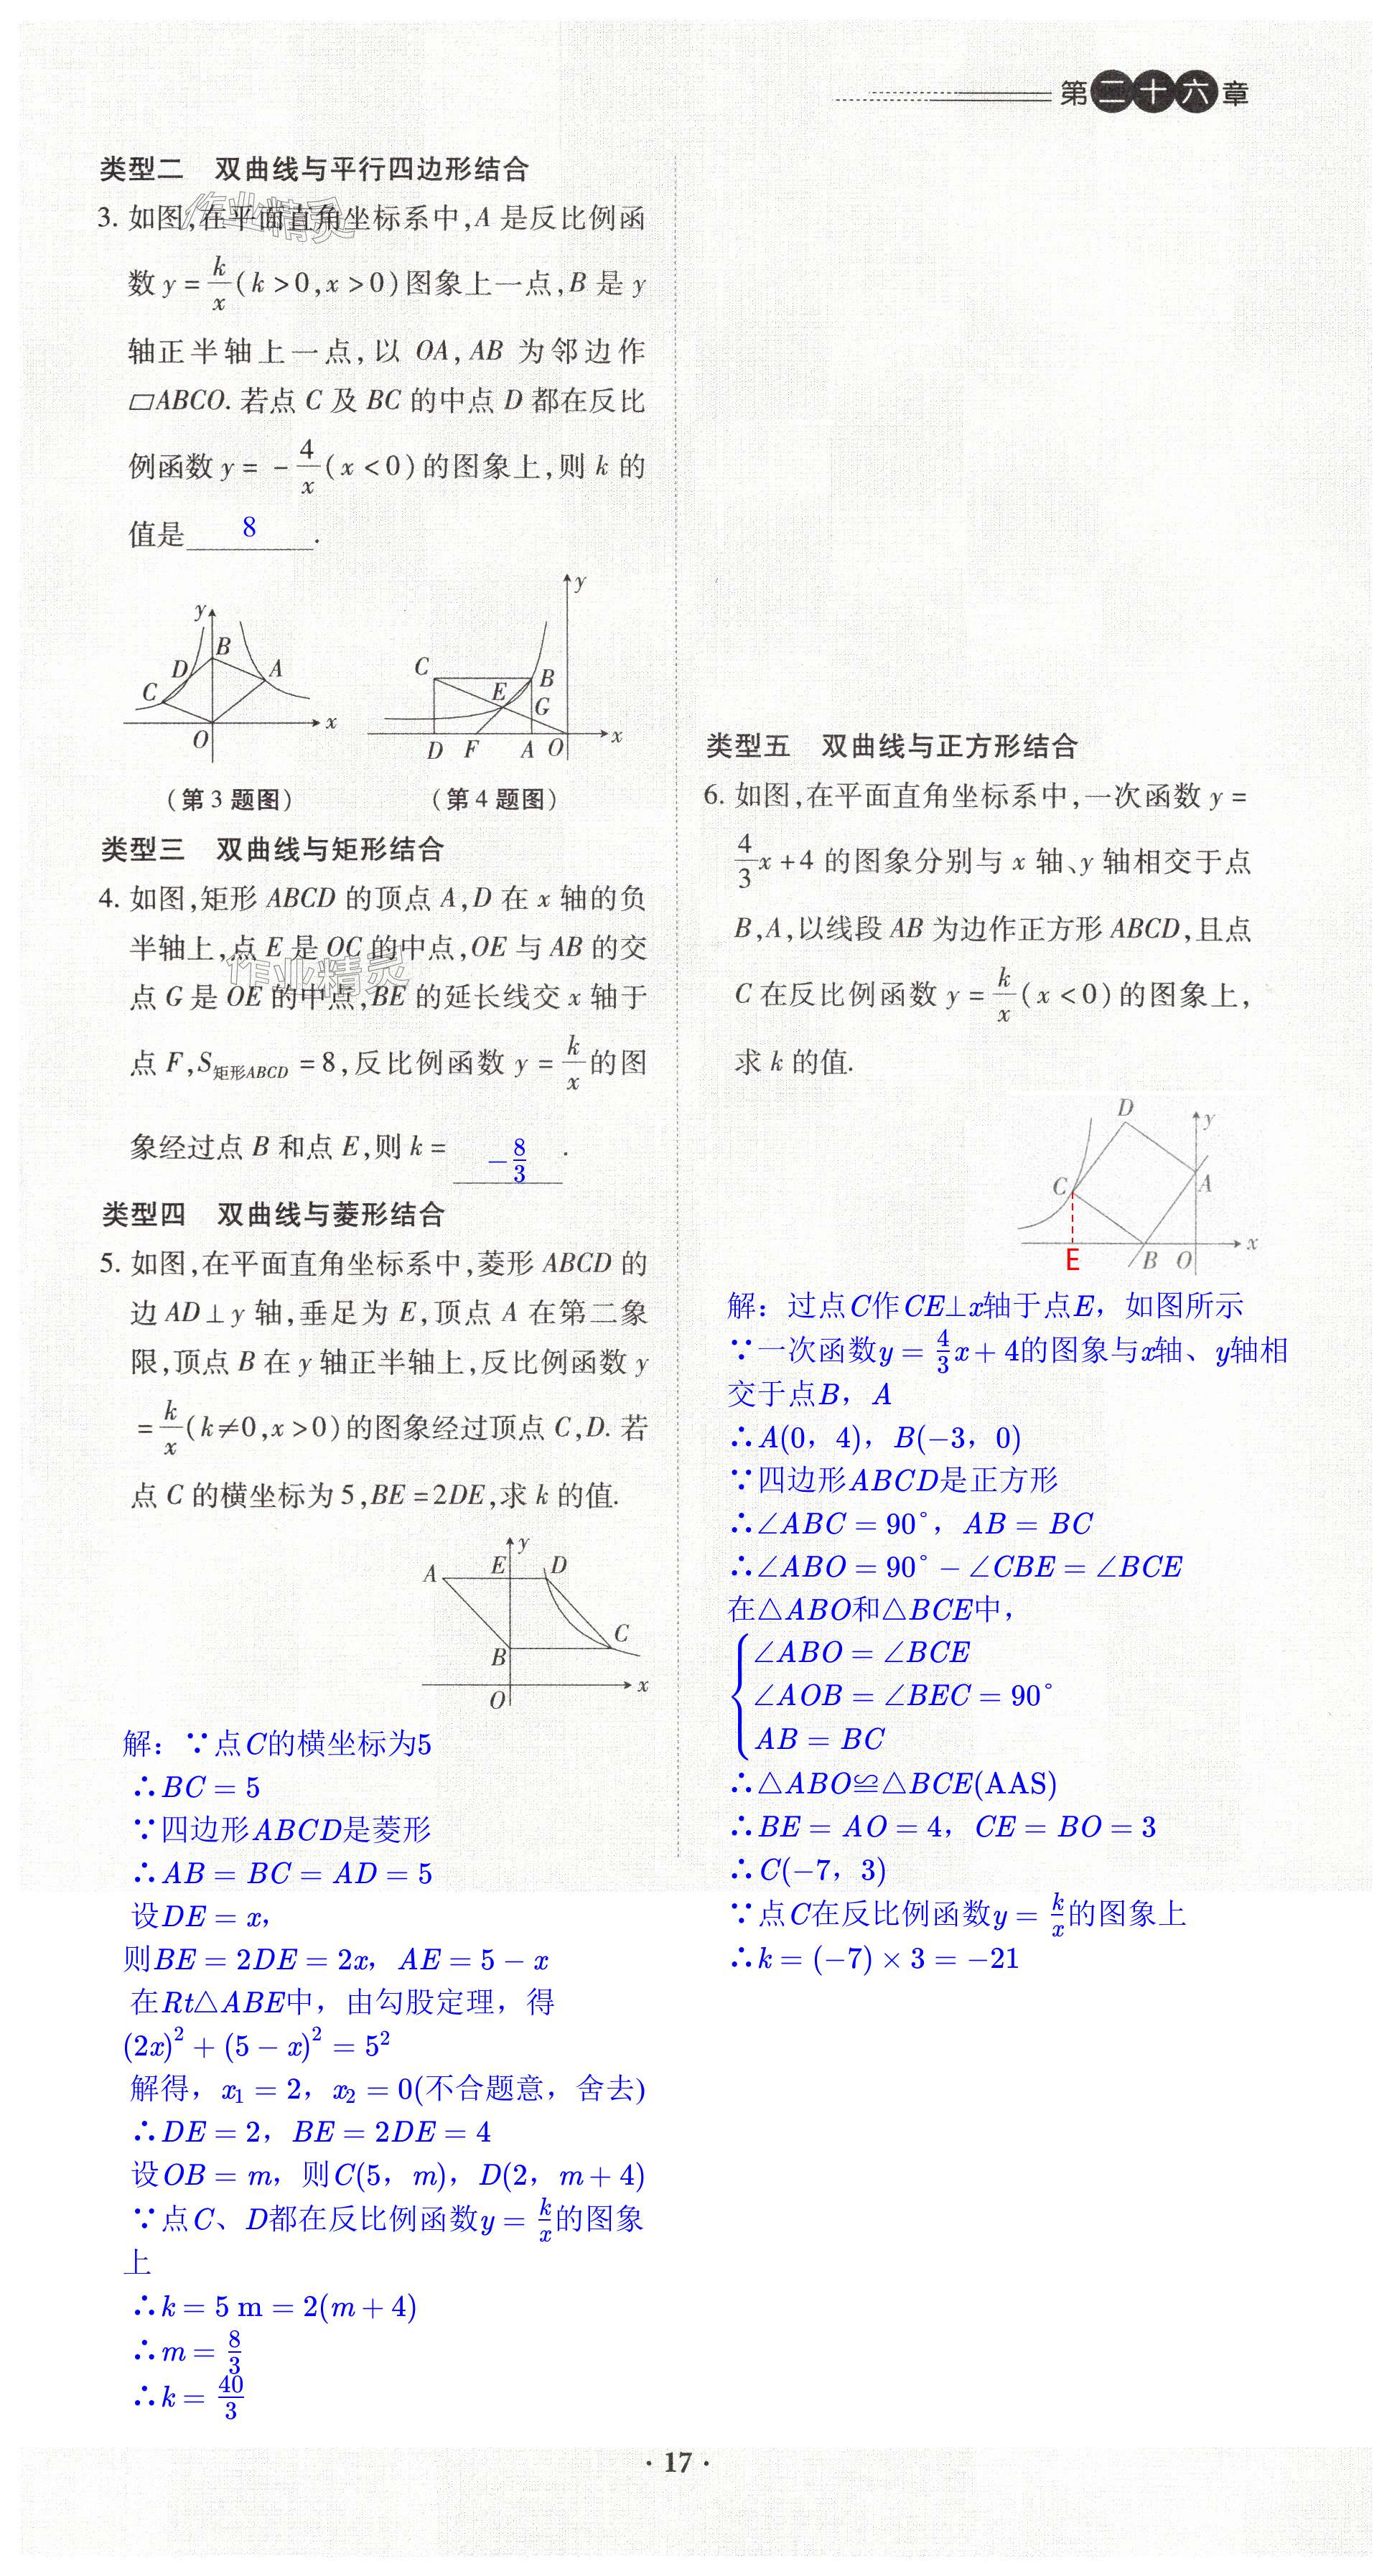 第二十六章
类型二 双曲线与平行四边形结合
3. 如图,在平面直角坐标系中,A 是反比例函
数 y = k/x (k>0,x>0)图象上一点,B 是 y
轴正半轴上一点,以 OA,AB 为邻边作
▱ABCO. 若点 C 及 BC 的中点 D 都在反比
例函数 y = -4/x (x<0)的图象上,则 k 的
值是 8 .
y
B
D
A
C
x
O
(第 3 题图)
y
C
B
E
G
D F A O x
(第 4 题图)
类型三 双曲线与矩形结合
4. 如图,矩形 ABCD 的顶点 A,D 在 x 轴的负
半轴上,点 E 是 OC 的中点,OE 与 AB 的交
点 G 是 OE 的中点,BE 的延长线交 x 轴于
点 F,S矩形ABCD = 8,反比例函数 y = k/x 的图
象经过点 B 和点 E,则 k = -8/3 .
类型四 双曲线与菱形结合
5. 如图,在平面直角坐标系中,菱形 ABCD 的
边 AD⊥y 轴,垂足为 E,顶点 A 在第二象
限,顶点 B 在 y 轴正半轴上,反比例函数 y
= k/x (k≠0,x>0)的图象经过顶点 C,D. 若
点 C 的横坐标为 5,BE=2DE,求 k 的值.
y
A E D
C
B
x
O
解：∵点C的横坐标为5
∴BC = 5
∵四边形ABCD是菱形
∴AB = BC = AD = 5
设DE = x，
则BE = 2DE = 2x，AE = 5 − x
在Rt△ABE中，由勾股定理，得
(2x)² + (5 − x)² = 5²
解得，x₁ = 2，x₂ = 0(不合题意，舍去)
∴DE = 2，BE = 2DE = 4
设OB = m，则C(5，m)，D(2，m + 4)
∵点C、D都在反比例函数y = k/x的图象
上
∴k = 5 m = 2(m + 4)
∴m = 8/3
∴k = 40/3
类型五 双曲线与正方形结合
6. 如图,在平面直角坐标系中,一次函数 y =
4/3 x + 4 的图象分别与 x 轴、y 轴相交于点
B,A,以线段 AB 为边作正方形 ABCD,且点
C 在反比例函数 y = k/x (x<0)的图象上,
求 k 的值.
D
y
C
A
E
B O x
解：过点C作CE⊥x轴于点E，如图所示
∵一次函数y = 4/3 x + 4的图象与x轴、y轴相
交于点B，A
∴A(0，4)，B(−3，0)
∵四边形ABCD是正方形
∴∠ABC = 90°，AB = BC
∴∠ABO = 90° − ∠CBE = ∠BCE
在△ABO和△BCE中，
∠ABO = ∠BCE
∠AOB = ∠BEC = 90°
AB = BC
∴△ABO≌△BCE(AAS)
∴BE = AO = 4，CE = BO = 3
∴C(−7，3)
∵点C在反比例函数y = k/x的图象上
∴k = (−7) × 3 = −21
· 17 ·
作业精灵
作业精灵